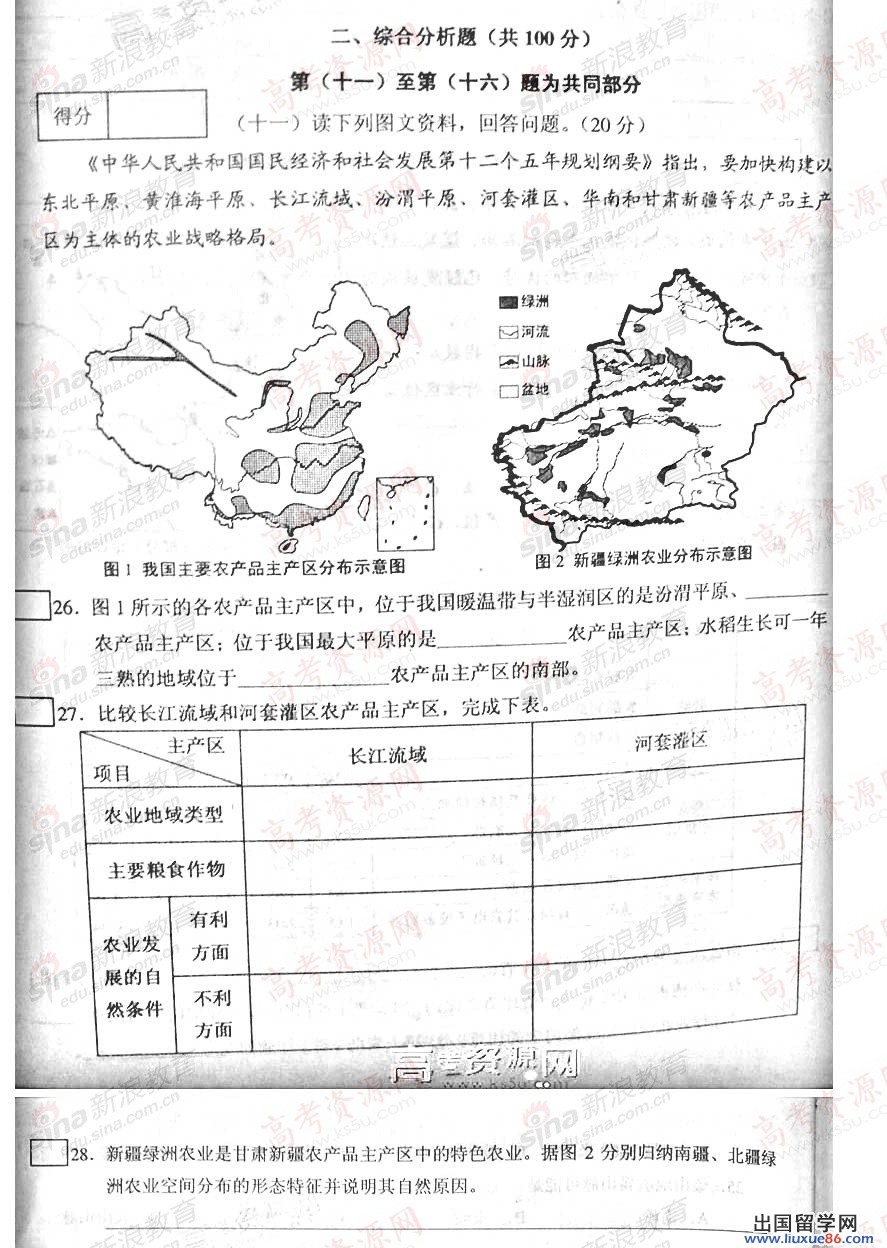 二、综合分析题（共100分）
第（十一）至第（十六）题为共同部分
得分
（十一）读下列图文资料，回答问题。（20分）
《中华人民共和国国民经济和社会发展第十二个五年规划纲要》指出，要加快构建以
东北平原、黄淮海平原、长江流域、汾渭平原、河套灌区、华南和甘肃新疆等农产品主产
区为主体的农业战略格局。
绿洲
河流
山脉
盆地
图1 我国主要农产品主产区分布示意图
图2 新疆绿洲农业分布示意图
26．图1所示的各农产品主产区中，位于我国暖温带与半湿润区的是汾渭平原、
农产品主产区；位于我国最大平原的是 农产品主产区；水稻生长可一年
三熟的地域位于 农产品主产区的南部。
27．比较长江流域和河套灌区农产品主产区，完成下表。
主产区
项目
长江流域
河套灌区
农业地域类型
主要粮食作物
农业发
展的自
然条件
有利
方面
不利
方面
高考资源网
www.ks5u.com
28．新疆绿洲农业是甘肃新疆农产品主产区中的特色农业。据图2分别归纳南疆、北疆绿
洲农业空间分布的形态特征并说明其自然原因。
出国留学网
www.liuxue86.com
sina新浪教育
edu.sina.com.cn